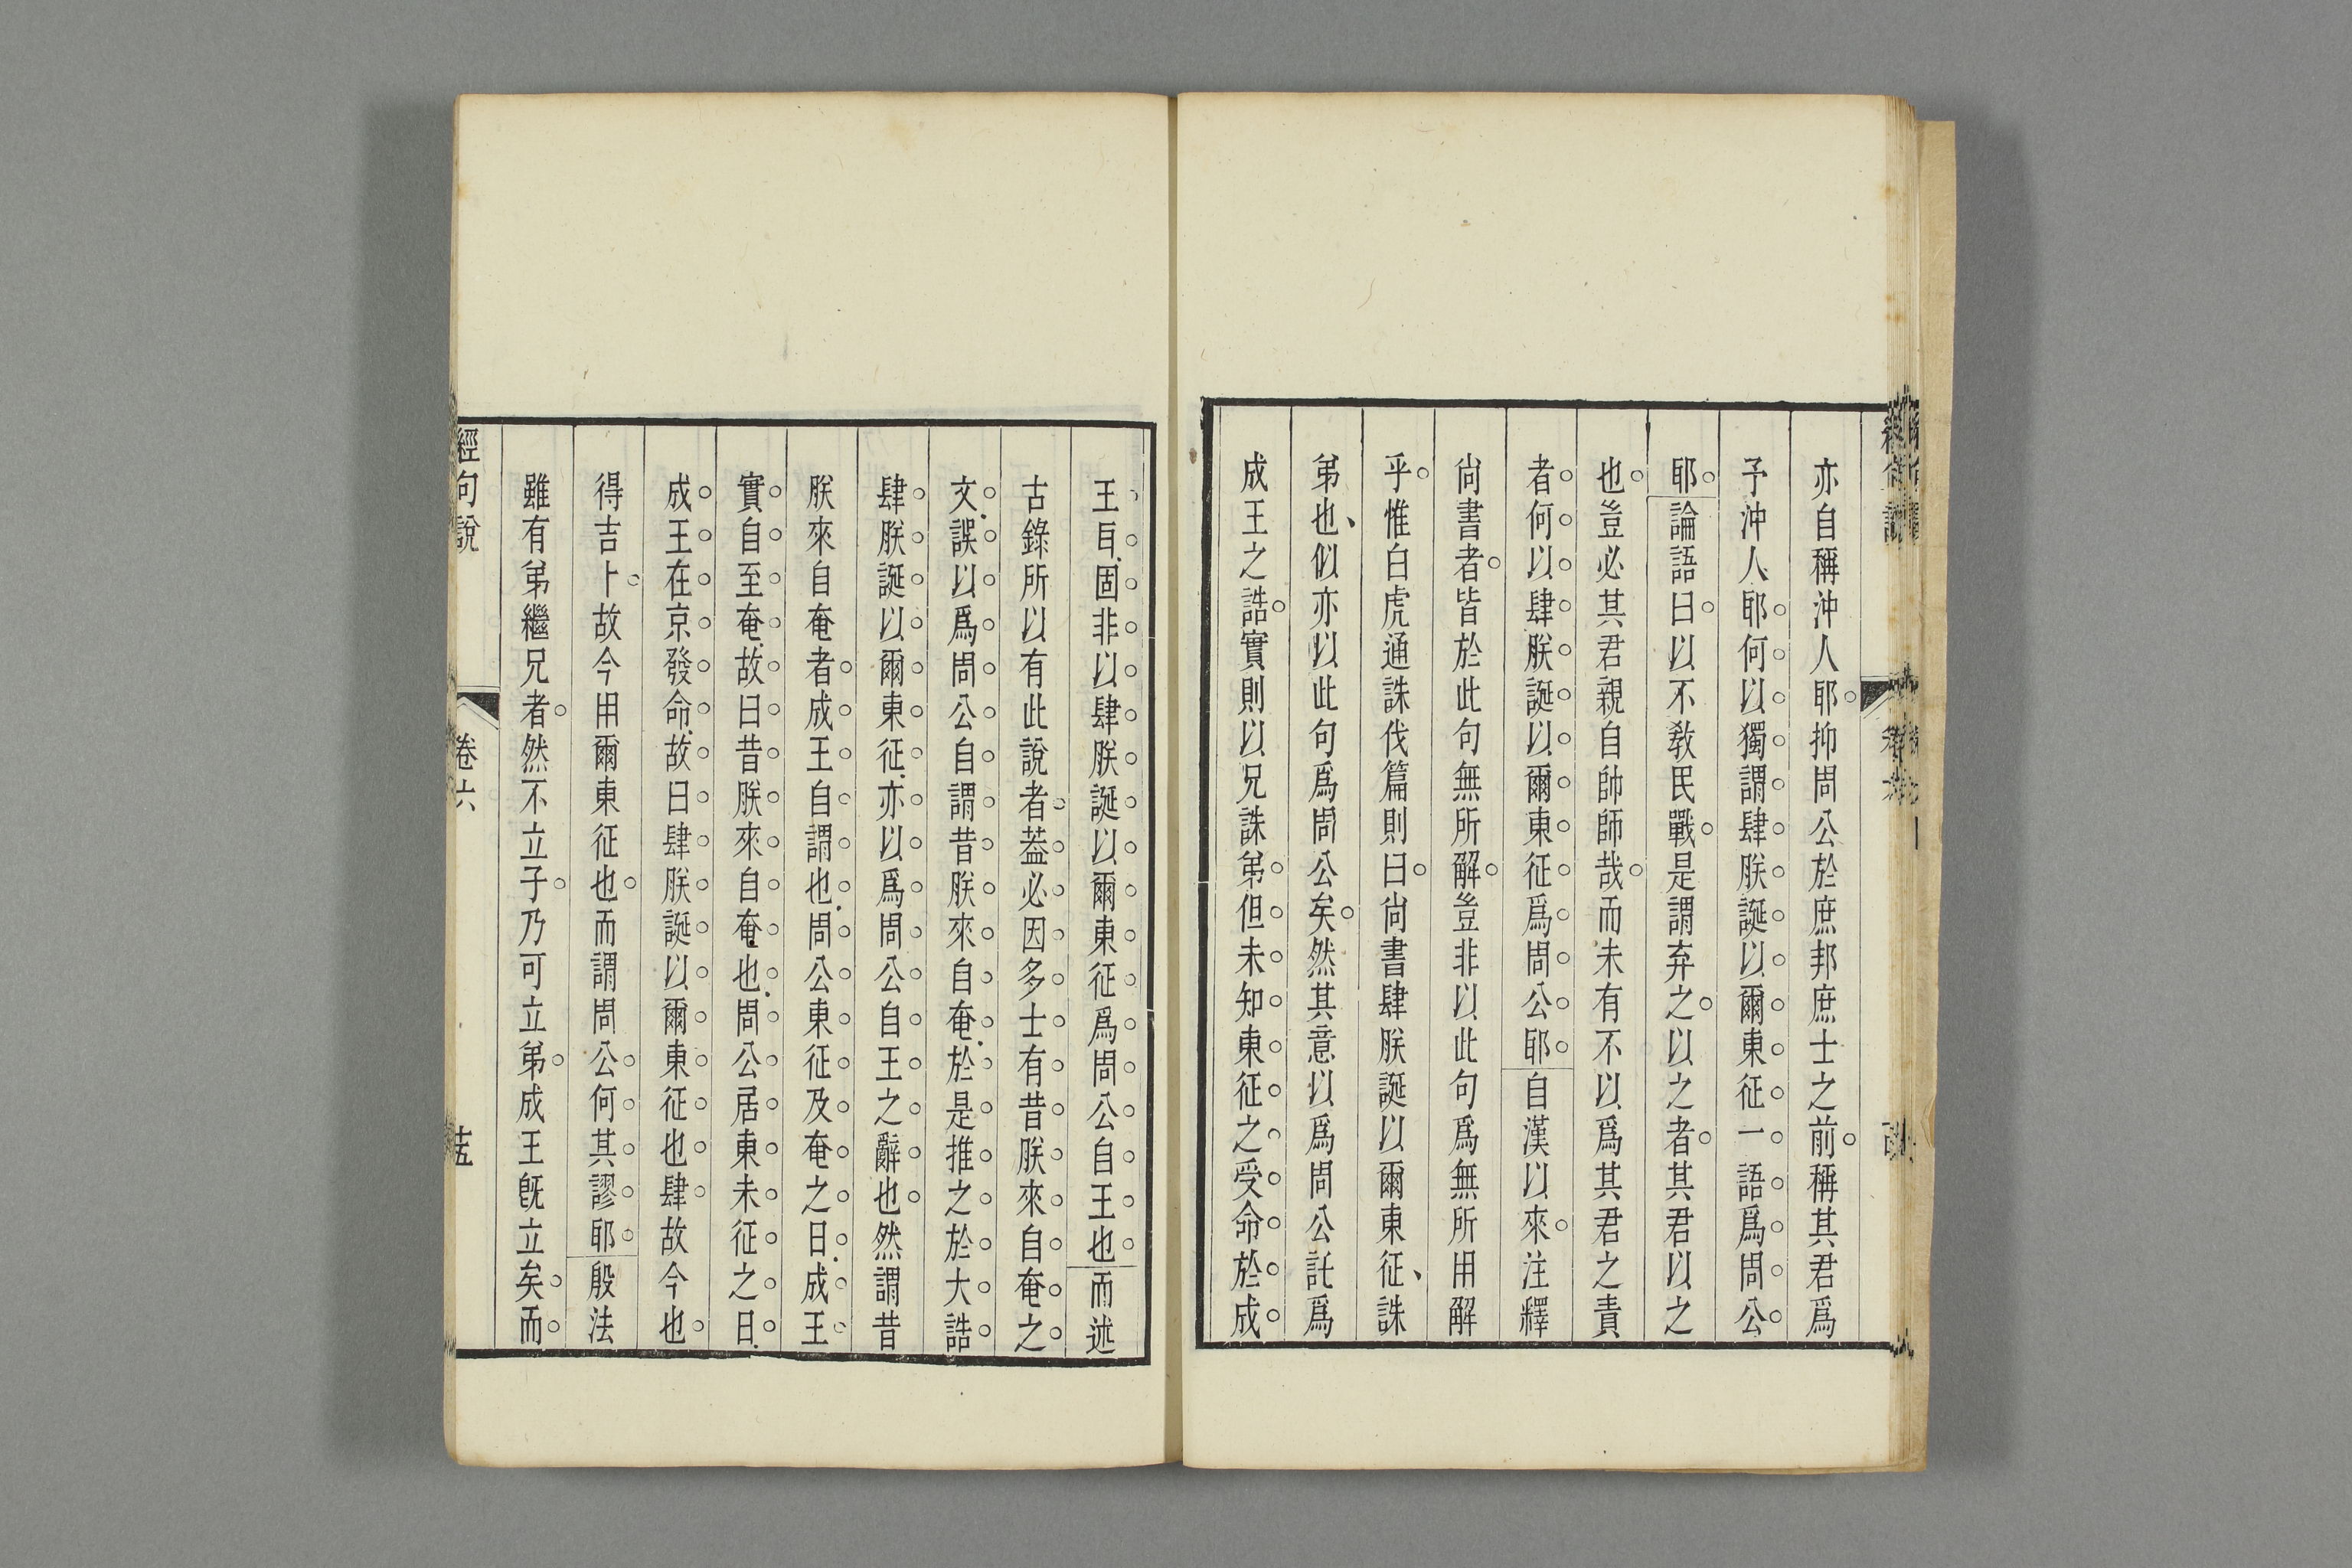 亦自稱沖人耶抑周公於庶邦庶士之前稱其君爲
予沖人耶何以獨謂肆朕誕以爾東征一語爲周公
耶論語曰以不敎民戰是謂弃之以之者其君以之
也豈必其君親自帥師哉而未有不以爲其君之責
者何以肆朕誕以爾東征爲周公耶自漢以來注釋
尙書者皆於此句無所解豈非以此句爲無所用解
乎惟白虎通誅伐篇則曰尙書肆朕誕以爾東征誅
弟也似亦以此句爲周公矣然其意以爲周公託爲
成王之誥實則以兄誅弟但未知東征之受命於成
王㠯固非以肆朕誕以爾東征爲周公自王也而述
古錄所以有此說者葢必因多士有昔朕來自奄之
文誤以爲周公自謂昔朕來自奄於是推之於大誥
肆朕誕以爾東征亦以爲周公自王之辭也然謂昔
朕來自奄者成王自謂也周公東征及奄之日成王
實自至奄故曰昔朕來自奄也周公居東未征之日
成王在京發命故曰肆朕誕以爾東征也肆故今也
得吉卜故今用爾東征也而謂周公何其謬耶殷法
雖有弟繼兄者然不立子乃可立弟成王旣立矣而
經句說
卷六